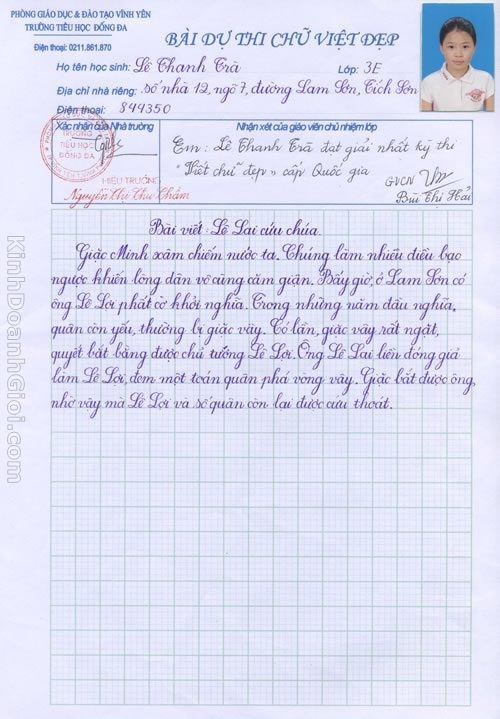 PHÒNG GIÁO DỤC & ĐÀO TẠO VĨNH YÊN
TRƯỜNG TIỂU HỌC ĐỐNG ĐA
Điện thoại: 0211.861.870
BÀI DỰ THI CHỮ VIỆT ĐẸP
Họ tên học sinh: Lê Thanh Trà Lớp: 3E
Địa chỉ nhà riêng: số nhà 12, ngõ 7, đường Lam Sơn, Tích Sơn
Điện thoại: 844350
Xác nhận của Nhà trường
TRƯỜNG
TIỂU HỌC
ĐỐNG ĐA
HIỆU TRƯỞNG
Nguyễn Thị Thu Thắm
Nhận xét của giáo viên chủ nhiệm lớp
Em: Lê Thanh Trà đạt giải nhất kỳ thi
"Viết chữ đẹp" cấp Quốc gia
GVCN
Bùi Thị Hải
Bài viết: Lê Lai cứu chúa.
Giặc Minh xâm chiếm nước ta. Chúng làm nhiều điều bạo
ngược khiến lòng dân vô cùng căm giận. Bấy giờ, ở Lam Sơn có
ông Lê Lợi phất cờ khởi nghĩa. Trong những năm đầu nghĩa,
quân còn yếu, thường bị giặc vây. Có lần, giặc vây rất ngặt,
quyết bắt bằng được chủ tướng Lê Lợi. Ông Lê Lai liền đóng giả
làm Lê Lợi, đem một toán quân phá vòng vây. Giặc bắt được ông,
nhờ vậy mà Lê Lợi và số quân còn lại được cứu thoát.
KinhDoanhGioi.com